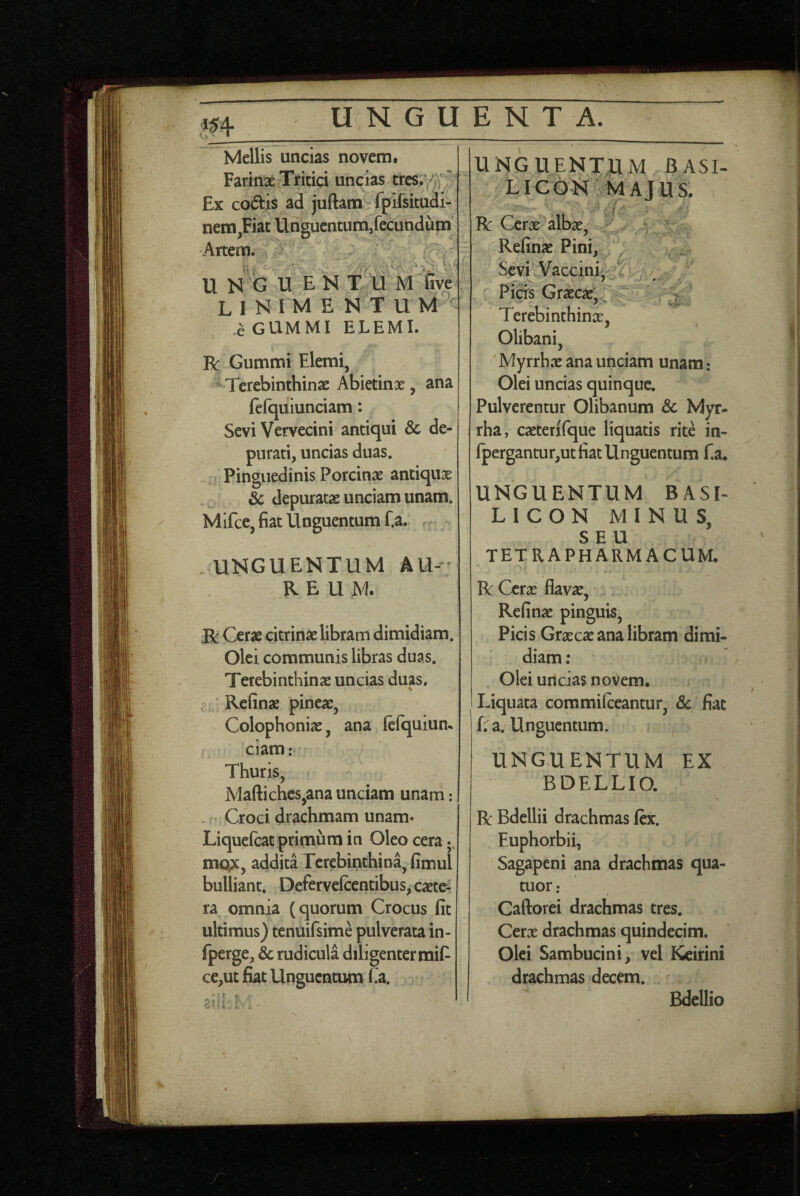 154 UNGUENTA.
Mellis uncias novem.
Farinæ Tritici uncias tres.
Ex coctis ad juſtam ſpiſsitudi-
nem,Fiat Unguentum,ſecundùm
Artem.
UNGUENTUM ſive
LINIMENTUM
è GUMMI ELEMI.
℞ Gummi Elemi,
Terebinthinæ Abietinæ, ana
ſeſquiunciam:
Sevi Vervecini antiqui & de-
purati, uncias duas.
Pinguedinis Porcinæ antiquæ
& depuratæ unciam unam.
Miſce, fiat Unguentum ſ.a.
UNGUENTUM AU-
REUM.
℞ Ceræ citrinæ libram dimidiam.
Olei communis libras duas.
Terebinthinæ uncias duas.
Reſinæ pineæ,
Colophoniæ, ana ſeſquiun-
ciam:
Thuris,
Maſtiches,ana unciam unam:
Croci drachmam unam.
Liqueſcat primùm in Oleo cera;
mox, additâ Terebinthinâ, ſimul
bulliant. Deferveſcentibus, cæte-
ra omnia (quorum Crocus ſit
ultimus) tenuiſsimè pulverata in-
ſperge, & rudiculâ diligenter miſ-
ce,ut fiat Unguentum ſ.a.
UNGUENTUM BASI-
LICON MAJUS.
℞ Ceræ albæ,
Reſinæ Pini,
Sevi Vaccini,
Picis Græcæ,
Terebinthinæ,
Olibani,
Myrrhæ ana unciam unam:
Olei uncias quinque.
Pulverentur Olibanum & Myr-
rha, cæteriſque liquatis ritè in-
ſpergantur,ut fiat Unguentum ſ.a.
UNGUENTUM BASI-
LICON MINUS,
SEU
TETRAPHARMACUM.
℞ Ceræ flavæ,
Reſinæ pinguis,
Picis Græcæ ana libram dimi-
diam:
Olei uncias novem.
Liquata commiſceantur, & fiat
ſ. a. Unguentum.
UNGUENTUM EX
BDELLIO.
℞ Bdellii drachmas ſex.
Euphorbii,
Sagapeni ana drachmas qua-
tuor:
Caſtorei drachmas tres.
Ceræ drachmas quindecim.
Olei Sambucini, vel Keirini
drachmas decem.
Bdellio